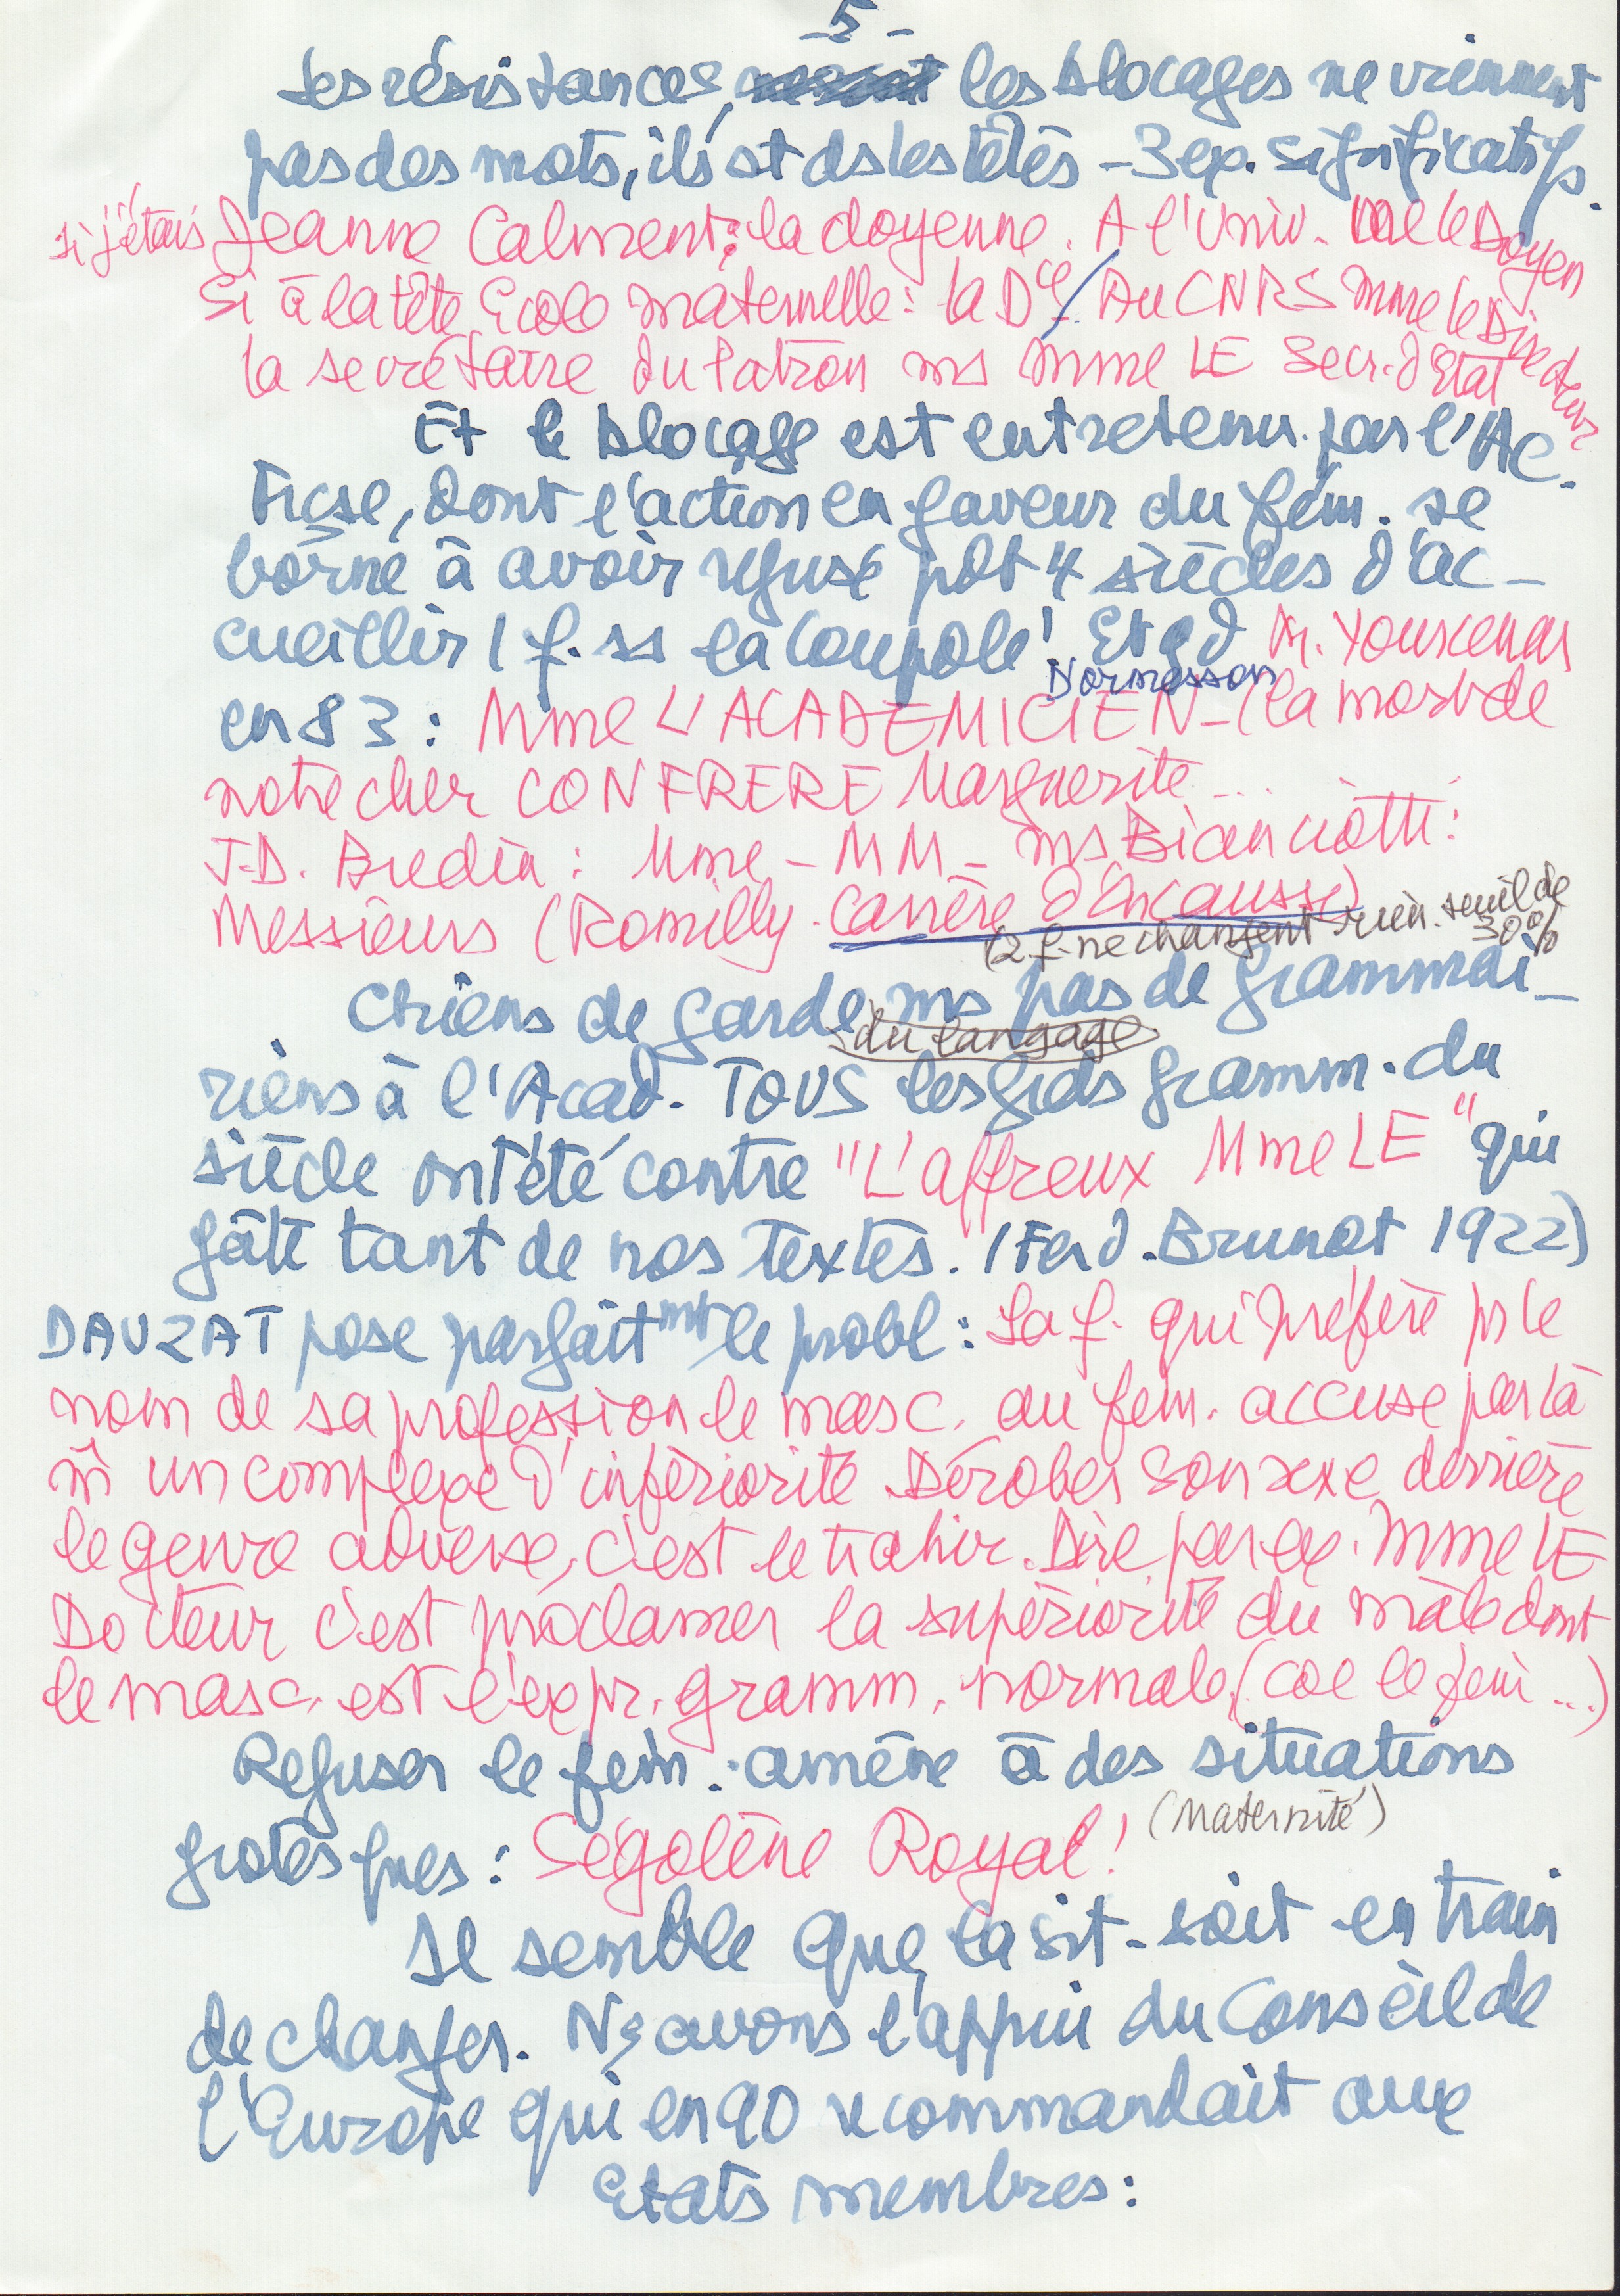 - 5 -
Les résistances, les blocages ne viennent
pas des mots, ils st ds les têtes - 3 ex. significatifs.
si j'étais Jeanne Calment : la doyenne. A l'Univ. Mme le Doyen
Si à la tête Ecole maternelle : la Dce / Au CNRS Mme le Directeur
la secrétaire du Patron ms Mme LE Secr. d'Etat
Et le blocage est entretenu par l'Ac.
Frçse, dont l'action en faveur du fém. se
borne à avoir refusé pdt 4 siècles d'ac-
cueillir 1 f. ss la Coupole ! Et qd M. Yourcenar
D'ormesson
en 83 : Mme L'ACADEMICIEN - (la mort de
notre cher CONFRERE Marguerite ...
J-D. Bredin : Mme - MM - ms Bianciotti :
Messieurs (Romilly - Carrère d'Encausse)
(2 f. ne changent rien. seuil de
30%
Chiens de garde ms pas de grammai-
du langage
riens à l'Acad. TOUS les gds gramm. du
siècle ont été contre "L'affreux Mme LE" qui
gâte tant de nos textes. (Ferd. Brunot 1922)
DAUZAT pose parfaitmt le probl : La f. qui préfère pr le
nom de sa profession le masc. au fém. accuse par là
m̂ un complexe d'infériorité. Dérober son sexe derrière
le genre adverse, c'est le trahir. Dire, par ex. Mme LE
Docteur c'est proclamer la supériorité du mâle dont
le masc. est l'expr. gramm. normale, (coe le fém ...)
Refuser le fém. : amène à des situations
grotesques : Ségolène Royal ! (Maternité)
Il semble que la sit. soit en train
de changer. Ns avons l'appui du Conseil de
l'Europe qui en 90 recommandait aux
Etats membres :